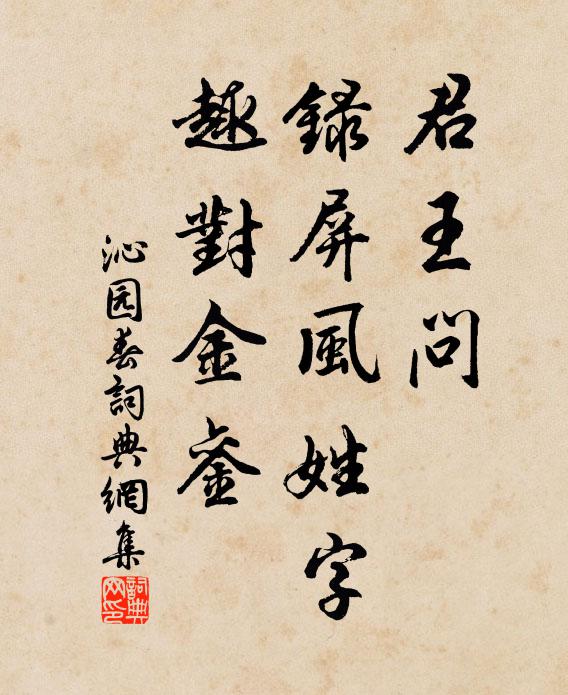 君王問
錄屏風姓字
趣對金銮
沁园春詞典網集
詞典网印